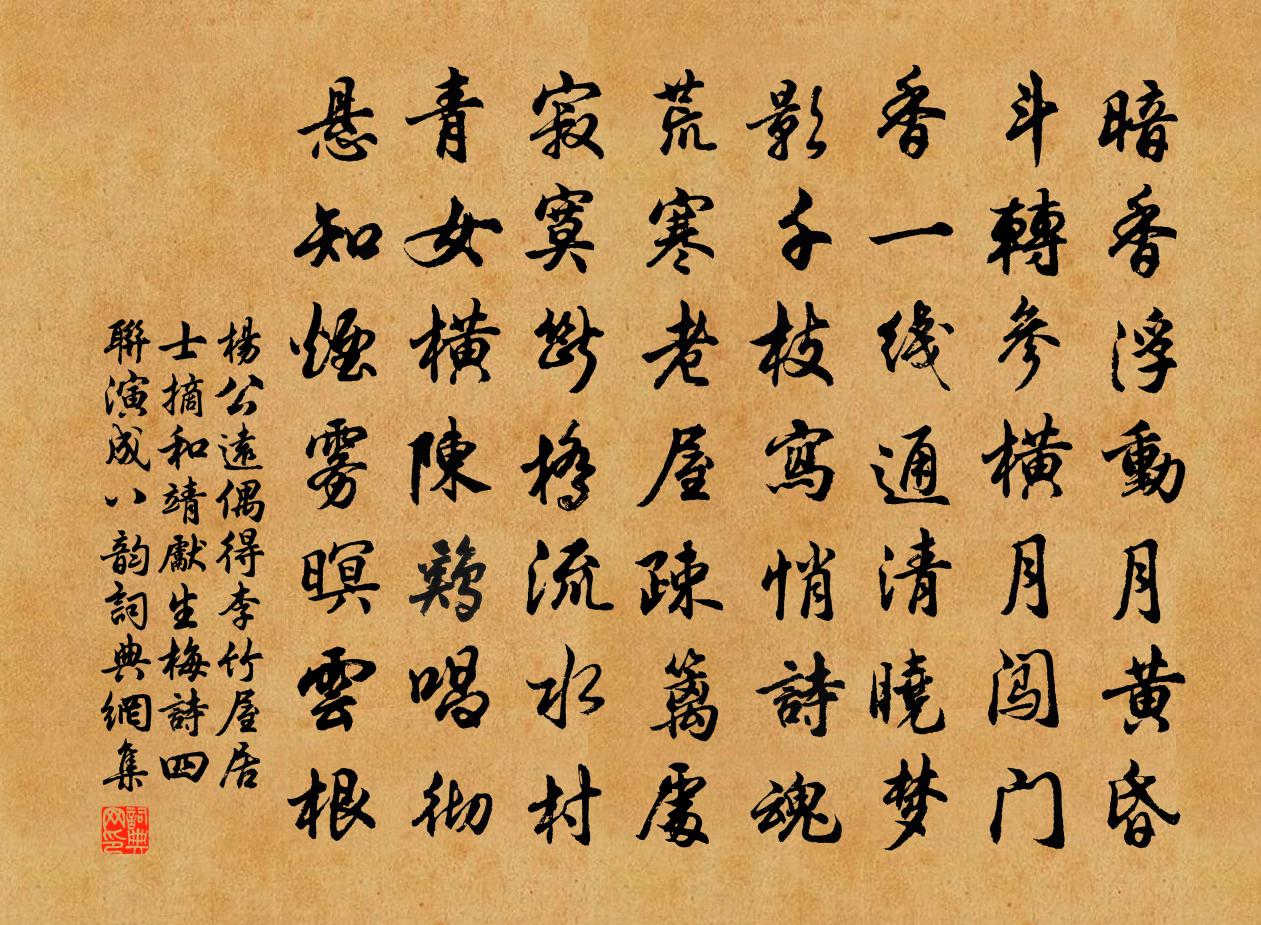 暗香浮動月黄昏
斗轉參横月闯门
香一綫通清曉梦
影千枝寫悄詩魂
荒寒老屋疎籬處
寂寞斷橋流水村
青女横陳鷄唱彻
悬知煙雾暝雲根
楊公遠偶得李竹屋居
士摘和靖獻生梅詩四
聯演成八韵詞典網集
詞典
网印